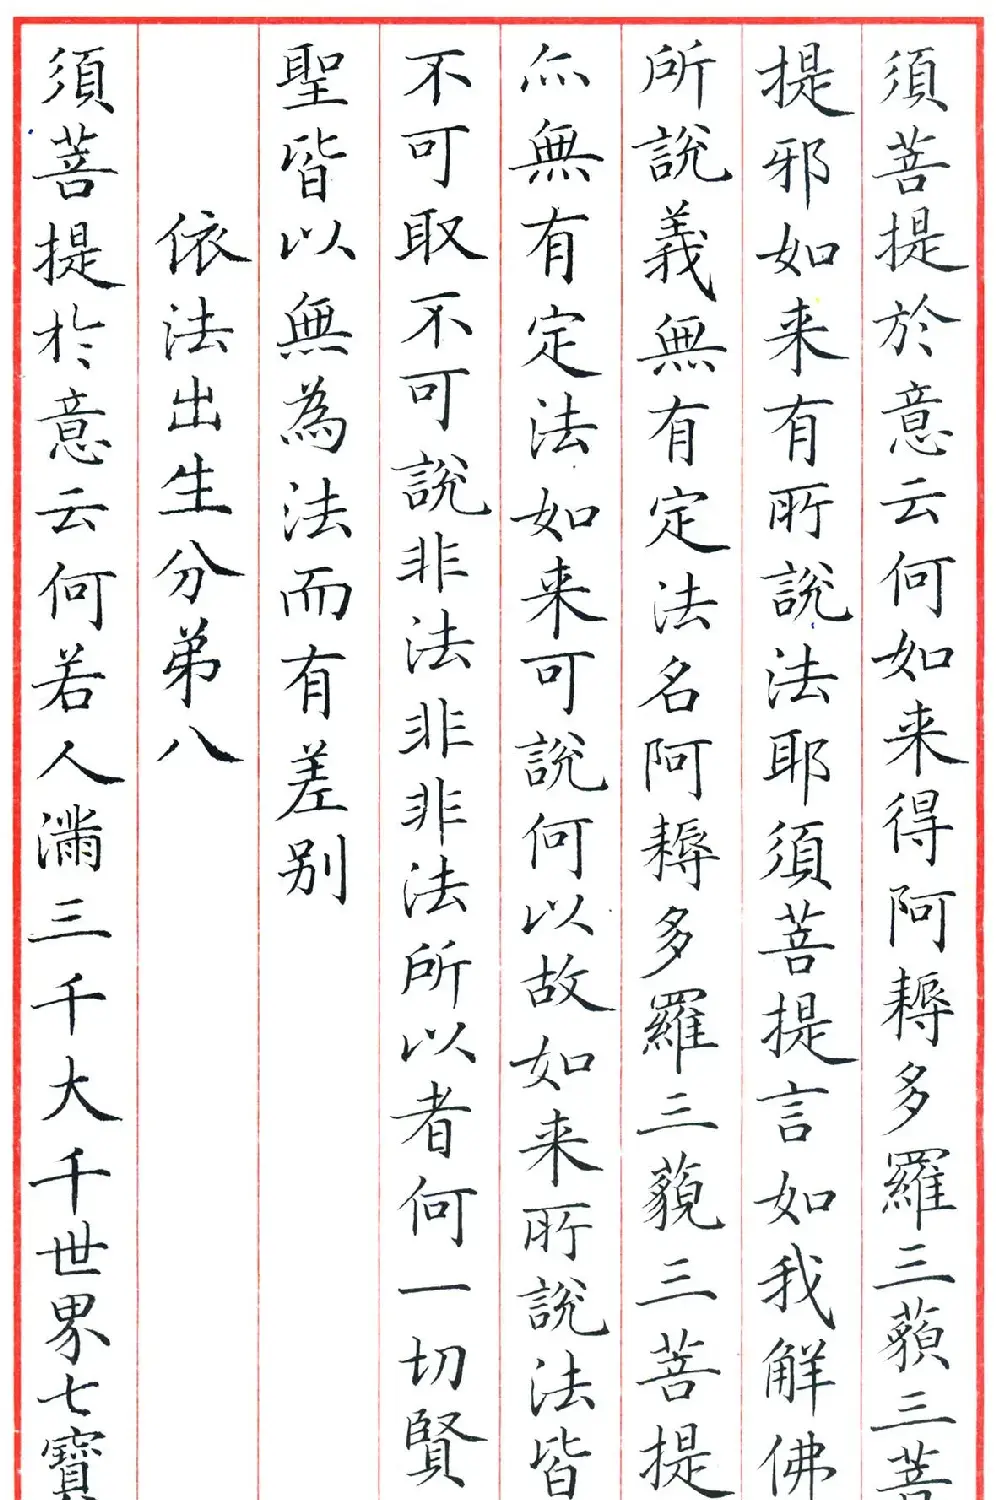 須菩提於意云何如来得阿耨多羅三藐三菩
提邪如来有所說法耶須菩提言如我解佛
所說義無有定法名阿耨多羅三藐三菩提
亦無有定法如来可說何以故如来所說法皆
不可取不可說非法非非法所以者何一切賢
聖皆以無為法而有差别
依法出生分弟八
須菩提於意云何若人滿三千大千世界七寶